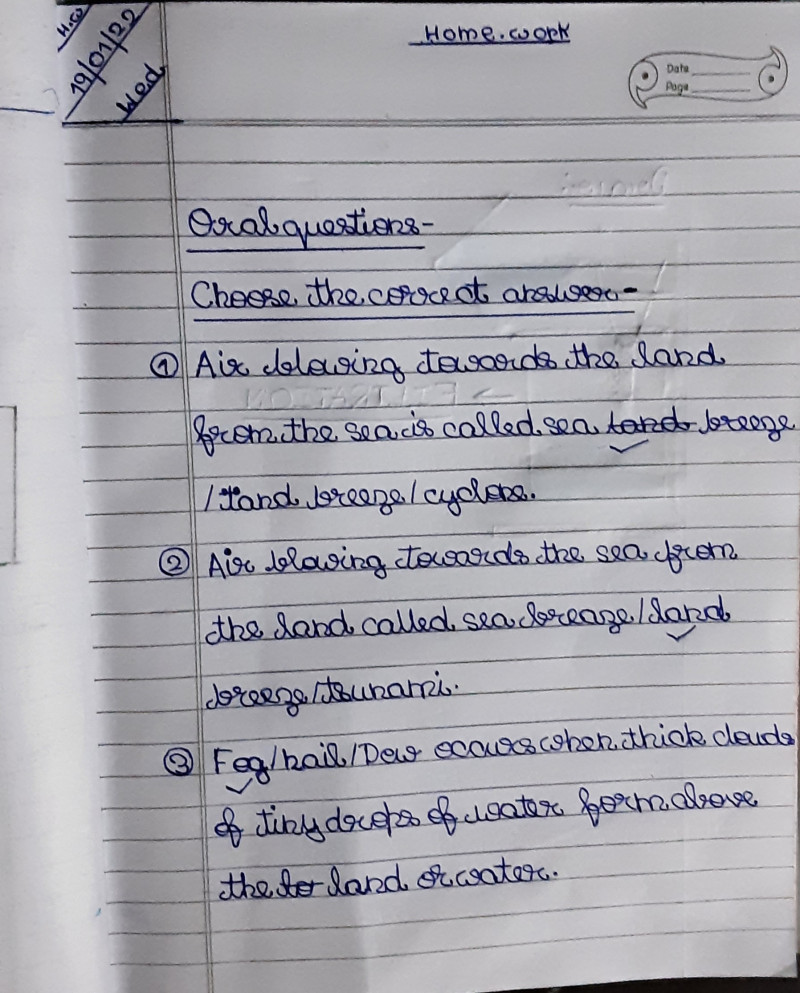 H.W
19/01/22
Wed
Home.work
Date
Page
Oral questions-
Choose the correct answer-
① Air blowing towards the land
from the sea is called sea land breeze
/land breeze/cyclone.
② Air blowing towards the sea from
the land called sea breaze/land
breeze/tsunami.
③ Fog/hail/Dew occurs when thick clouds
of tiny drops of water form above
the land or water.